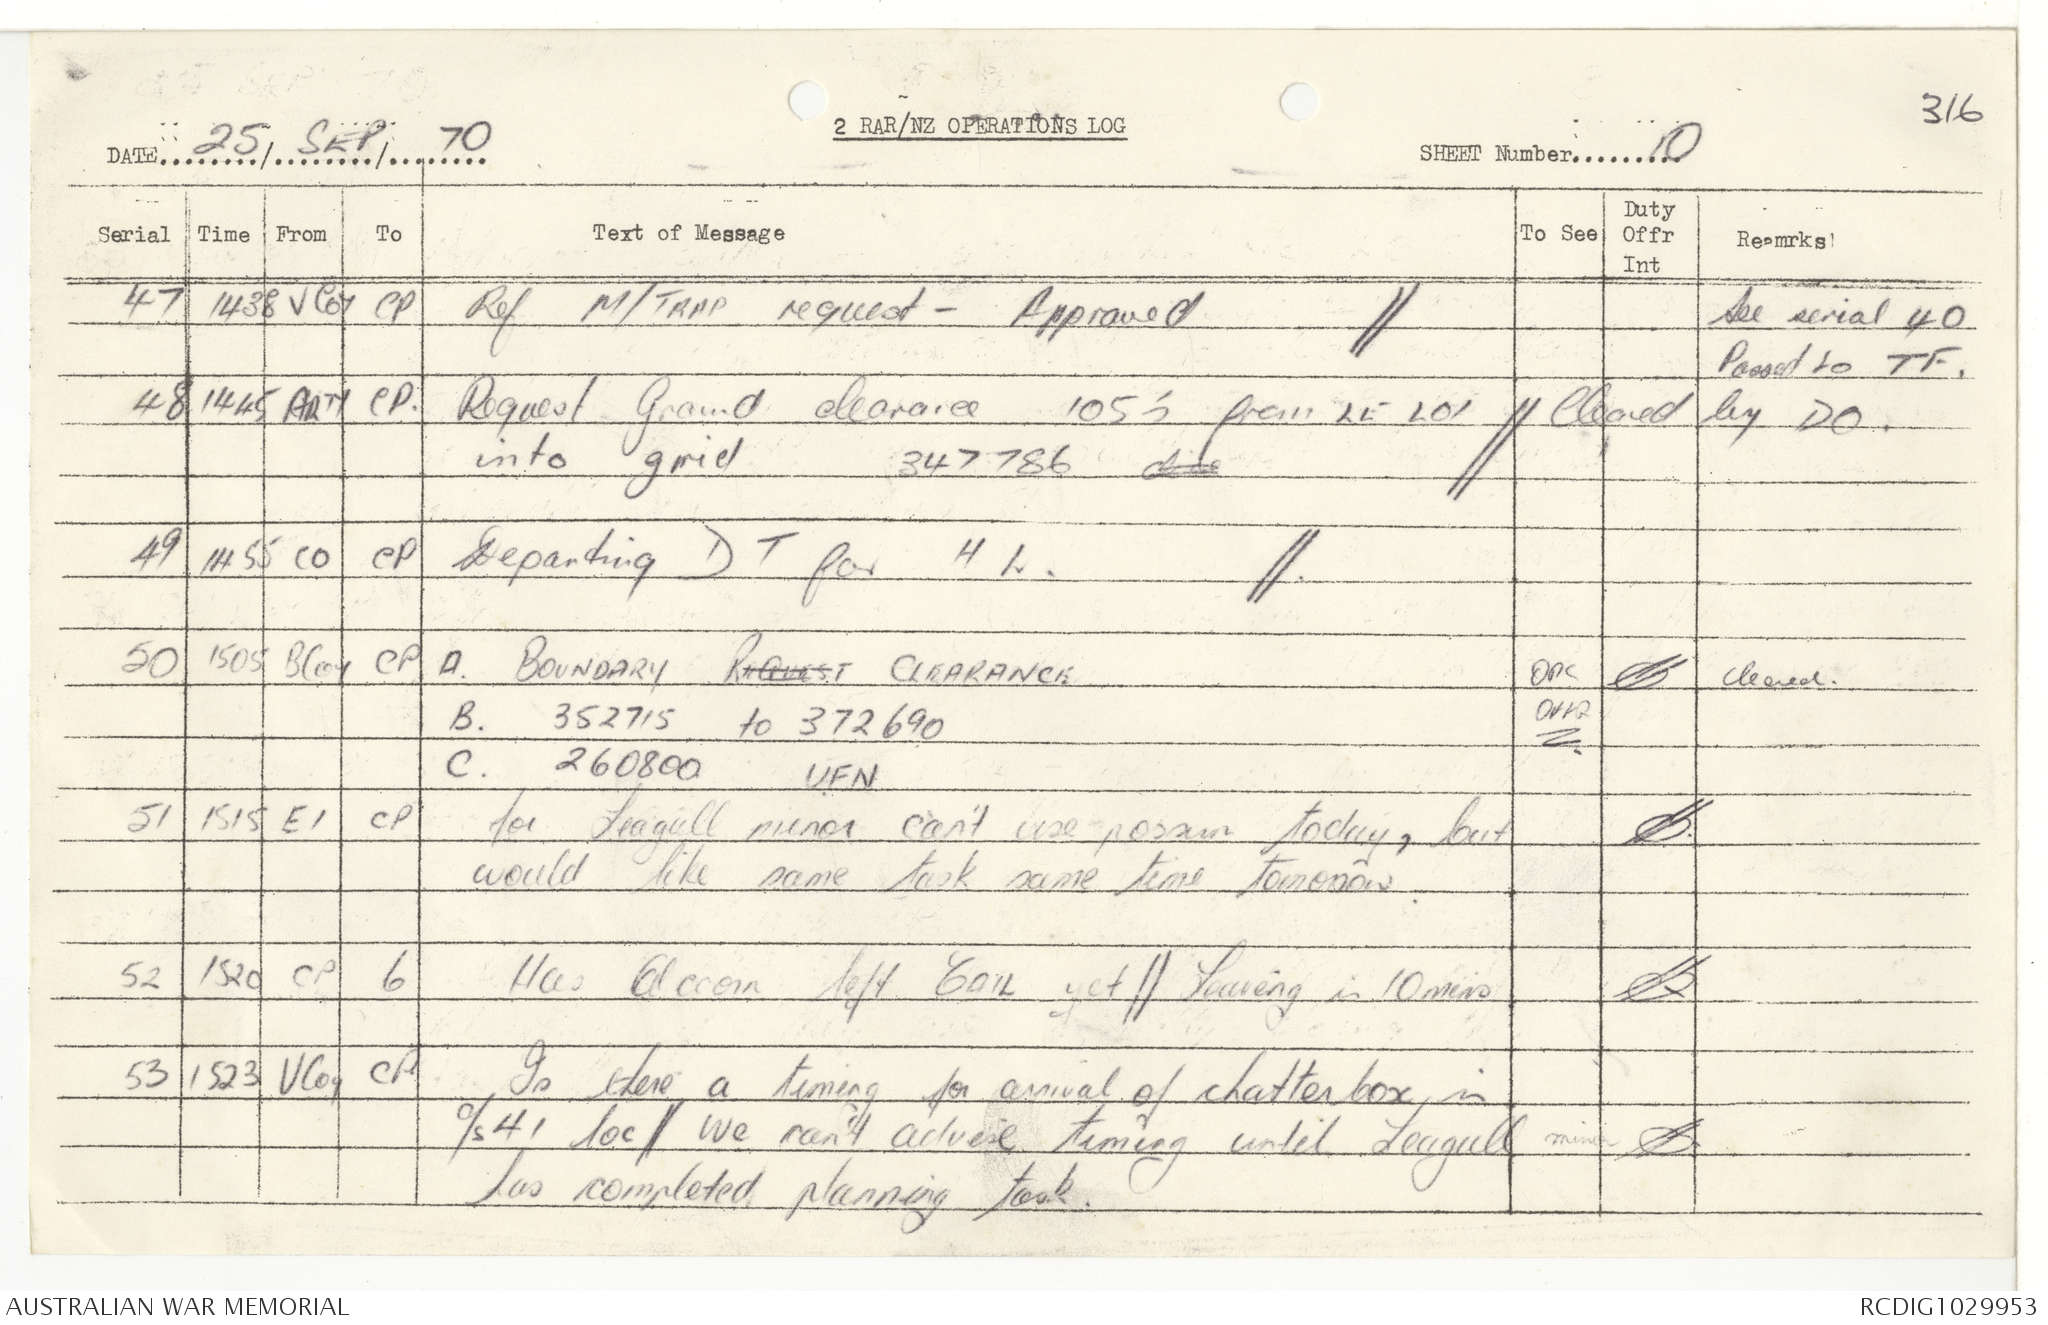 316
2 RAR/NZ OPERATIONS LOG
DATE 25/SEP/70
SHEET Number 10
Serial Time From To Text of Message To See Duty Offr Int Remrks
47 1438 VCoy CP Ref M/TRAP request - Approved // See serial 40
Passed to TF.
48 1445 ARTY CP. Request Ground clearance 105's from LE LOI // Cleared by DO.
into grid 347786 //
49 1455 CO CP Departing DT for 4 L. //.
50 1505 BCoy CP A. BOUNDARY REQUEST CLEARANCE OPS cleared.
B. 352715 to 372690 OFFR
C. 260800 UFN
51 1515 E1 CP for Seagull minor can't use possum today, but
would like same task same time tomorrow.
52 1520 CP 6 Has Acorn left yet // Leaving in 10 mins
53 1523 VCoy CP Is there a timing for arrival of chatterbox in
c/s 41 loc // We can't advise timing until Seagull minor
has completed planning task.
AUSTRALIAN WAR MEMORIAL
RCDIG1029953